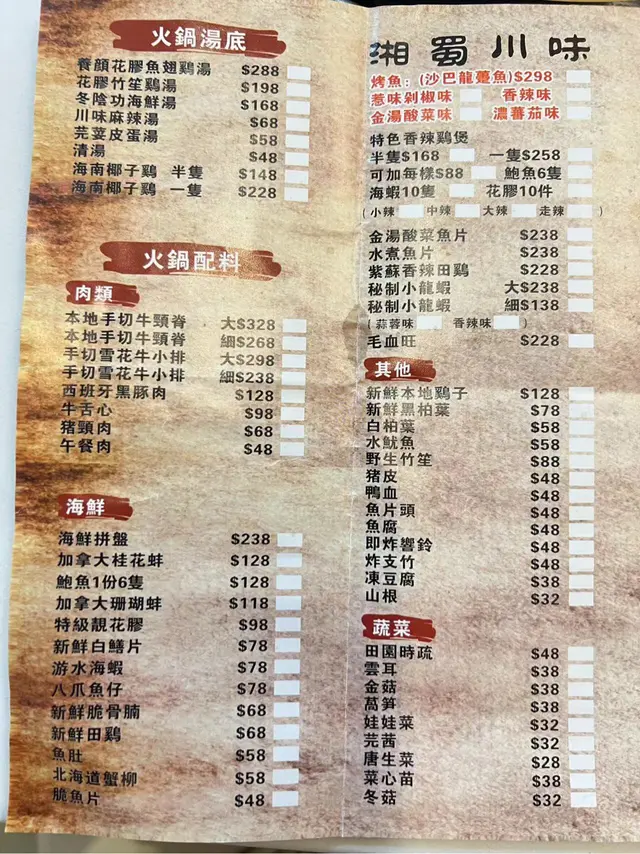 火鍋湯底
養顏花膠魚翅鷄湯 $288
花膠竹笙鷄湯 $198
冬陰功海鮮湯 $168
川味麻辣湯 $68
芫荽皮蛋湯 $58
清湯 $48
海南椰子鷄 半隻 $148
海南椰子鷄 一隻 $228
火鍋配料
肉類
本地手切牛頸脊 大$328
本地手切牛頸脊 細$268
手切雪花牛小排 大$298
手切雪花牛小排 細$238
西班牙黑豚肉 $128
牛舌心 $98
猪頸肉 $68
午餐肉 $48
海鮮
海鮮拼盤 $238
加拿大桂花蚌 $128
鮑魚1份6隻 $128
加拿大珊瑚蚌 $118
特級靚花膠 $98
新鮮白鱔片 $78
游水海蝦 $78
八爪魚仔 $78
新鮮脆骨腩 $68
新鮮田鷄 $68
魚肚 $58
北海道蟹柳 $58
脆魚片 $48
湘蜀川味
烤魚：(沙巴龍躉魚)$298
惹味剁椒味 香辣味
金湯酸菜味 濃蕃茄味
特色香辣鷄煲
半隻$168 一隻$258
可加每樣$88 鮑魚6隻
海蝦10隻 花膠10件
(小辣 中辣 大辣 走辣 )
金湯酸菜魚片 $238
水煮魚片 $238
紫蘇香辣田鷄 $228
秘制小龍蝦 大$238
秘制小龍蝦 細$138
(蒜蓉味 香辣味 )
毛血旺 $228
其他
新鮮本地鷄子 $128
新鮮黑柏葉 $78
白柏葉 $58
水魷魚 $58
野生竹笙 $88
猪皮 $48
鴨血 $48
魚片頭 $48
魚腐 $48
即炸響鈴 $48
炸支竹 $48
凍豆腐 $38
山根 $32
蔬菜
田園時疏 $48
雲耳 $38
金菇 $38
萵笋 $38
娃娃菜 $32
芫茜 $32
唐生菜 $28
菜心苗 $38
冬菇 $32